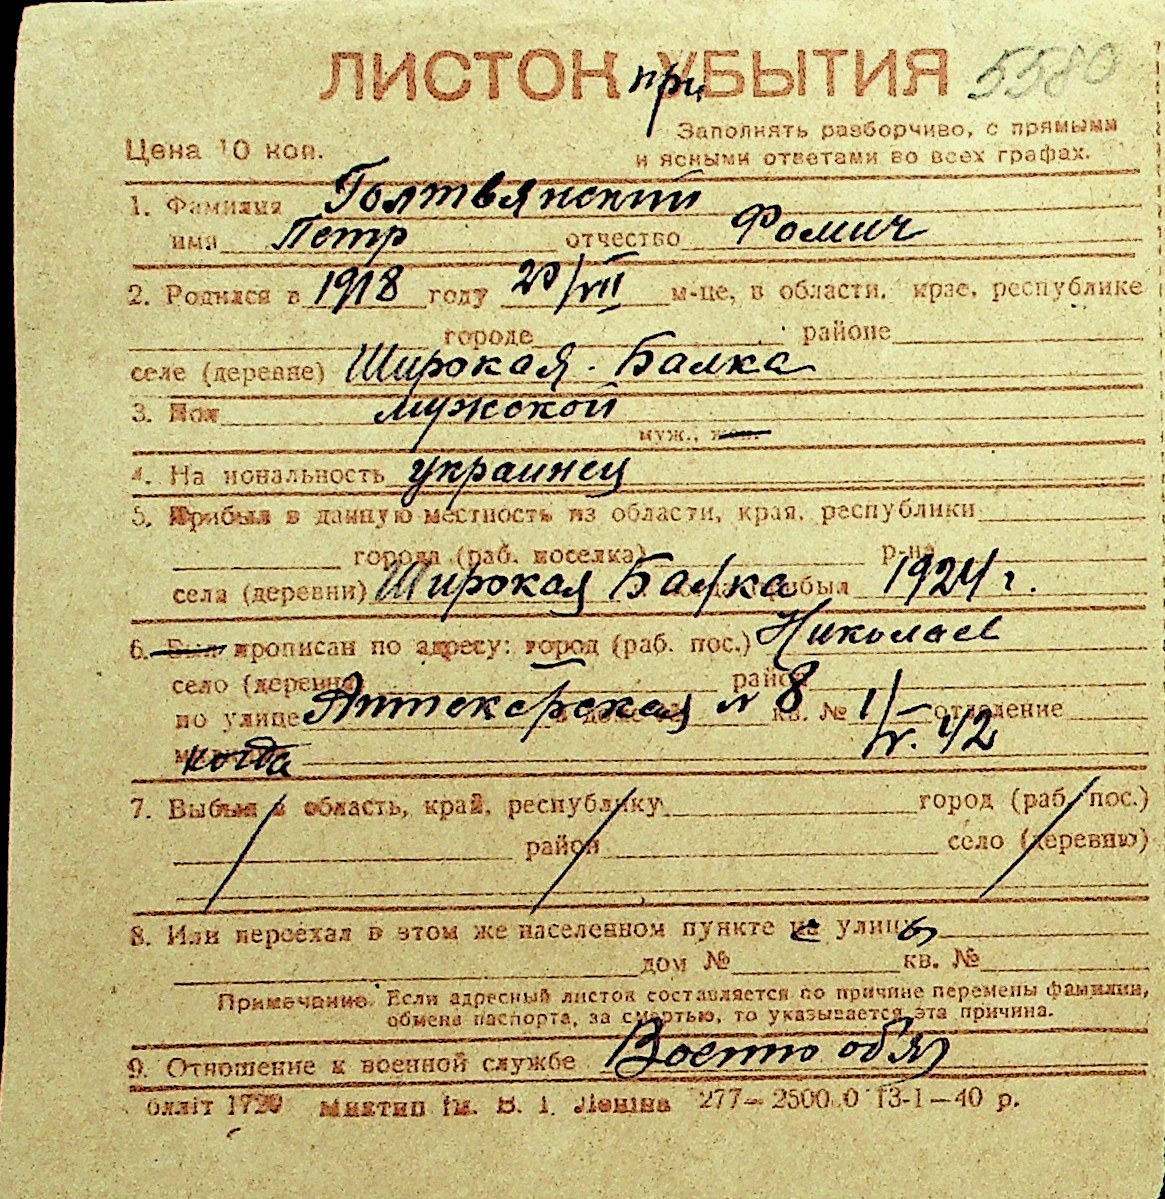 ЛИСТОК при УБЫТИЯ 5580
Цена 10 коп.
Заполнять разборчиво, с прямыми
и ясными ответами во всех графах.
1. Фамилия Голтвянский
имя Петр отчество Фомич
2. Родился в 1918 году 20/VII м-це, в области, крае, республике
городе районе
селе (деревне) Широкая Балка
3. Пол мужской
муж., жен.
4. Национальность украинец
5. Прибыл в данную местность из области, края, республики
города (раб. поселка) р-на
села (деревни) Широкая Балка прибыл 1924 г.
6. Был прописан по адресу: город (раб. пос.) Николаев
село (деревня) район
по улице Аптекарская № 8 кв. № отделение
когда 1/IV. 42
7. Выбыл в область, край, республику город (раб. пос.)
район село (деревню)
8. Или переехал в этом же населенном пункте на улицу
дом № кв. №
Примечание. Если адресный листок составляется по причине перемены фамилии,
обмена паспорта, за смертью, то указывается эта причина.
9. Отношение к военной службе Военно обяз
блліт 1790 Миктип ім. В. І. Леніна 277— 2500.0 13-1—40 р.